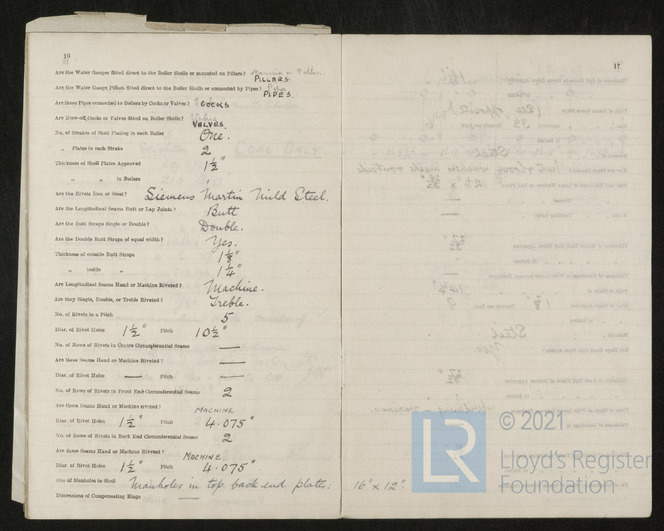 16
Are the Water Gauges fitted direct to the Boiler Shells or mounted on Pillars? PILLARS.
Are the Water Gauge Pillars fitted direct to the Boiler Shells or connected by Pipes? PIPES.
Are these Pipes connected to Boilers by Cocks or Valves? COCKS
Are Blow-off Cocks or Valves fitted on Boiler Shells? VALVES.
No. of Strakes of Shell Plating in each Boiler One.
„ Plates in each Strake 2
Thickness of Shell Plates Approved 1½"
„ „ in Boilers
Are the Rivets Iron or Steel? Siemens Martin Mild Steel.
Are the Longitudinal Seams Butt or Lap Joints? Butt
Are the Butt Straps Single or Double? Double.
Are the Double Butt Straps of equal width? Yes.
Thickness of outside Butt Straps
„ inside „ 1¼"
Are Longitudinal Seams Hand or Machine Riveted? Machine.
Are they Single, Double, or Treble Riveted? Treble.
No. of Rivets in a Pitch 5
Diar. of Rivet Holes 1½" Pitch 10½"
No. of Rows of Rivets in Centre Circumferential Seams —
Are these Seams Hand or Machine Riveted? —
Diar. of Rivet Holes — Pitch —
No. of Rows of Rivets in Front End Circumferential Seams 2
Are these Seams Hand or Machine Riveted? MACHINE
Diar. of Rivet Holes 1½" Pitch 4.075"
No. of Rows of Rivets in Back End Circumferential Seams 2
Are these Seams Hand or Machine Riveted? MACHINE.
Diar. of Rivet Holes 1½" Pitch 4.075"
Size of Manholes in Shell Manholes in top back end plates: 16" x 12".
Dimensions of Compensating Rings —
17
LR
© 2021
Lloyd's Register
Foundation